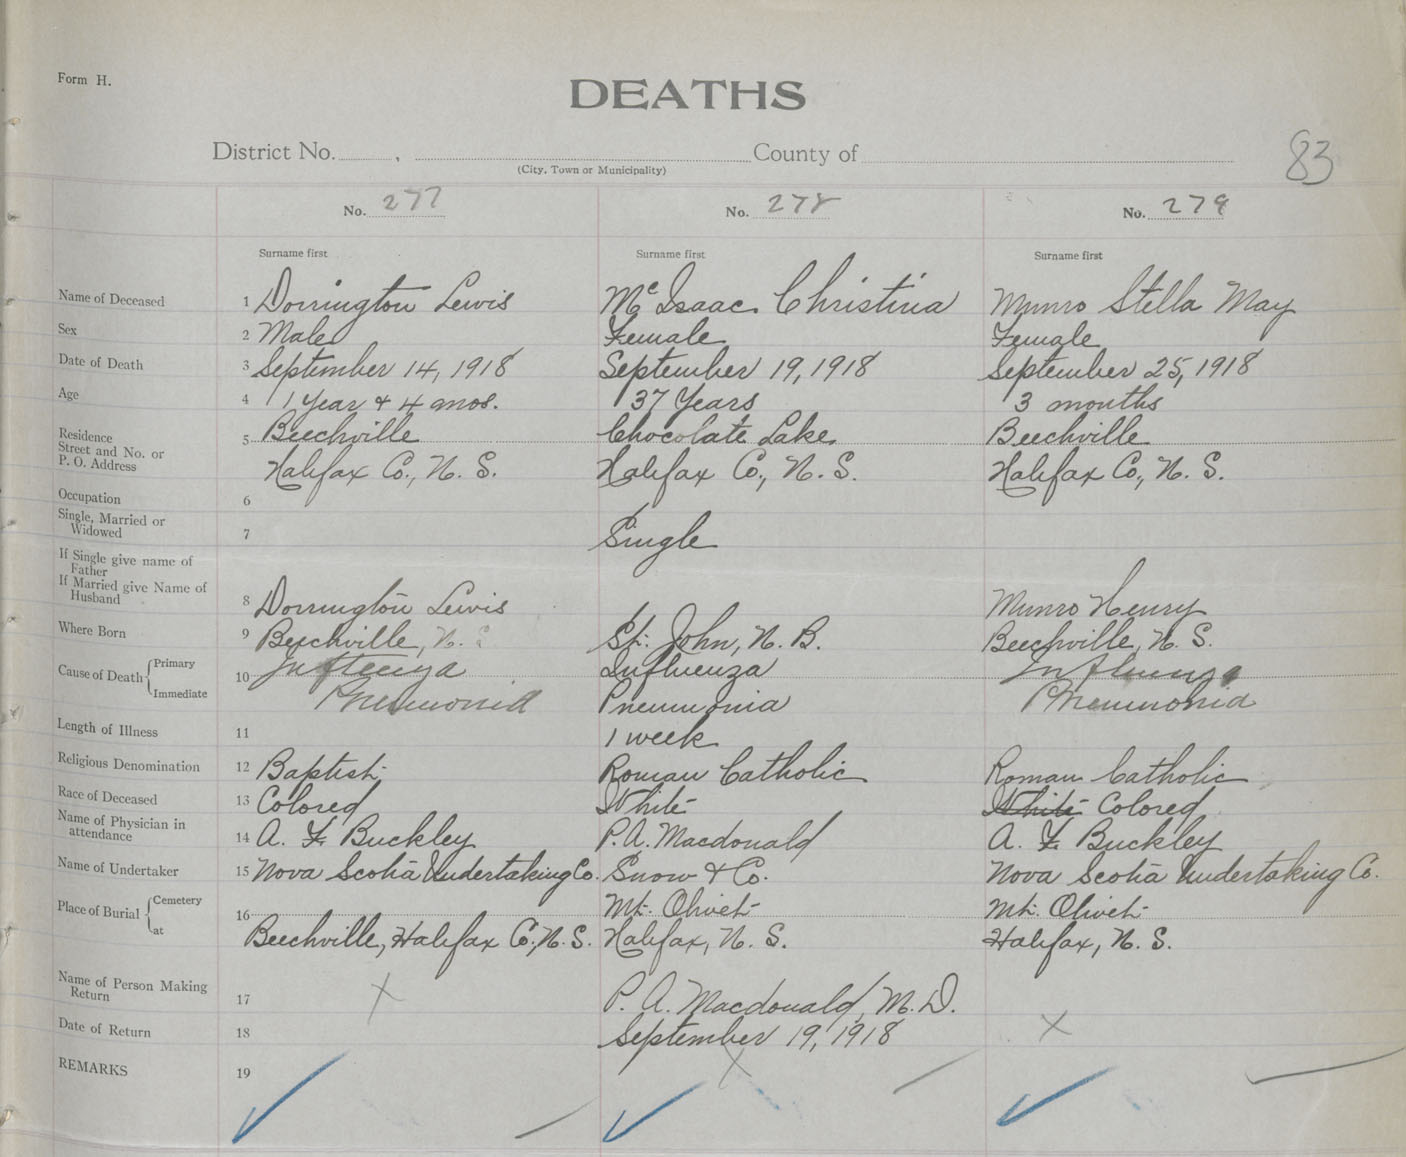 Form H.
DEATHS
District No. , County of
(City, Town or Municipality)
83
No. 277 No. 278 No. 279
Surname first Surname first Surname first
Name of Deceased 1 Dorrington Lewis Mc Isaac Christina Munro Stella May
Sex 2 Male Female Female
Date of Death 3 September 14, 1918 September 19, 1918 September 25, 1918
Age 4 1 year & 4 mos. 37 Years 3 months
Residence
Street and No. or
P. O. Address
5 Beechville Chocolate Lake Beechville
Halifax Co., N. S. Halifax Co., N. S. Halifax Co., N. S.
Occupation 6
Single, Married or
Widowed
7 Single
If Single give name of
Father
If Married give Name of
Husband
8 Dorrington Lewis Munro Henry
Where Born 9 Beechville, N. S St. John, N. B. Beechville, N. S.
Cause of Death Primary 10 Influenza Influenza Influenza
Immediate Pneumonia Pneumonia Pneumonia
Length of Illness 11 1 week
Religious Denomination 12 Baptist Roman Catholic Roman Catholic
Race of Deceased 13 Colored White White Colored
Name of Physician in
attendance
14 A. F. Buckley P. A. Macdonald A. F. Buckley
Name of Undertaker 15 Nova Scotia Undertaking Co. Snow & Co. Nova Scotia Undertaking Co.
Place of Burial Cemetery 16 Mt. Olivet Mt. Olivet
at Beechville, Halifax Co., N. S. Halifax, N. S. Halifax, N. S.
Name of Person Making
Return
17 X P. A. Macdonald, M. D.
Date of Return 18 September 19, 1918 X
REMARKS 19 X